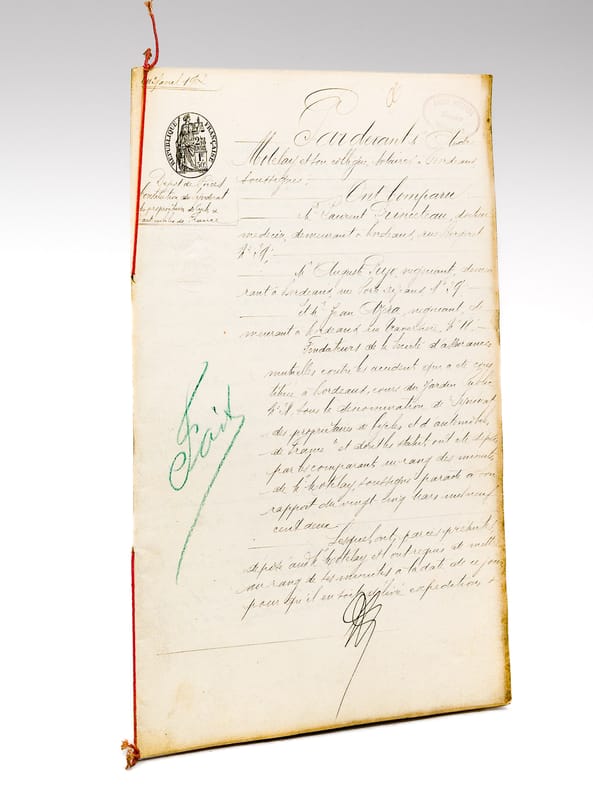 RÉPUBLIQUE FRANÇAISE
Dépôt de pièces
Constitution du Syndicat
des propriétaires de Cycles &
automobiles de France
Pardevant Me
Motelay et son collègue, notaires à Bordeaux
soussignés.
Ont Comparu
Mr Laurent docteur
médecin, demeurant à Bordeaux, rue
No 59.
Mr Auguste négociant, demeu
rant à Bordeaux, rue No 59.
Et Mr Jean négociant, de
meurant à Bordeaux, No 11.
Fondateurs de la Société d'assurances
mutuelles contre les accidents qui a été cons
tituée à Bordeaux, cours du Jardin Public
No sous la dénomination de Syndicat
des propriétaires de Cycles et d'automobiles
de France" et dont les statuts ont été déposés
par les comparants au rang des minutes
de Me Motelay soussigné, par acte à son
rapport du vingt cinq mars mil neuf
cent deux.
Lesquels ont, par ces présentes,
déposé audit Me Motelay et l'ont requis de mettre
au rang de ses minutes à la date de ce jour
pour qu'il en soit délivré expéditions &
Fait